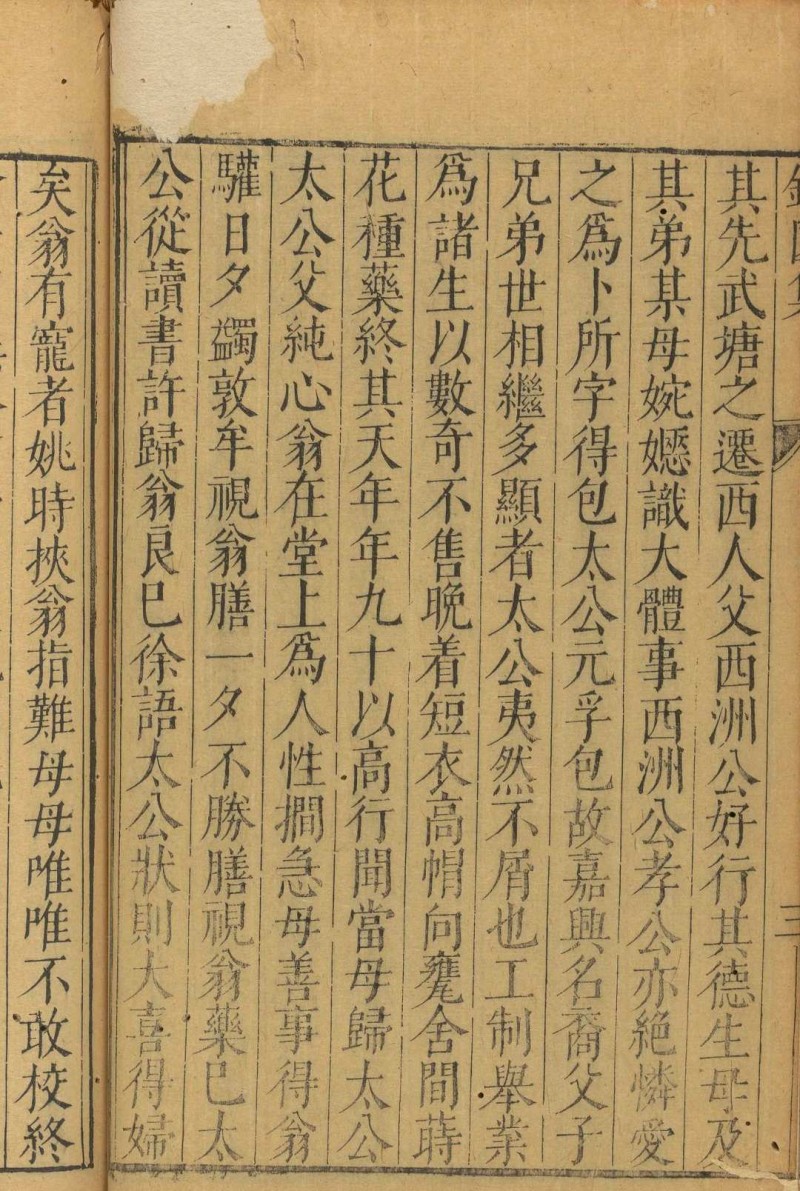 其先武塘之遷西人父西洲公好行其德生母及
其弟某母婉嫕識大體事西洲公孝公亦絕憐愛
之爲卜所字得包太公元孚包故嘉興名裔父子
兄弟世相繼多顯者太公夷然不屑也工制舉業
爲諸生以數奇不售晚着短衣高帽向甕舍間蒔
花種藥終其天年年九十以高行聞當母歸太公
太公父純心翁在堂上爲人性㨴急母善事得翁
驩日夕蠲敦牟視翁膳一夕不勝膳視翁藥巳太
公從讀書許歸翁良巳徐語太公狀則大喜得婦
矣翁有寵者姚時挾翁指難母母唯唯不敢校終